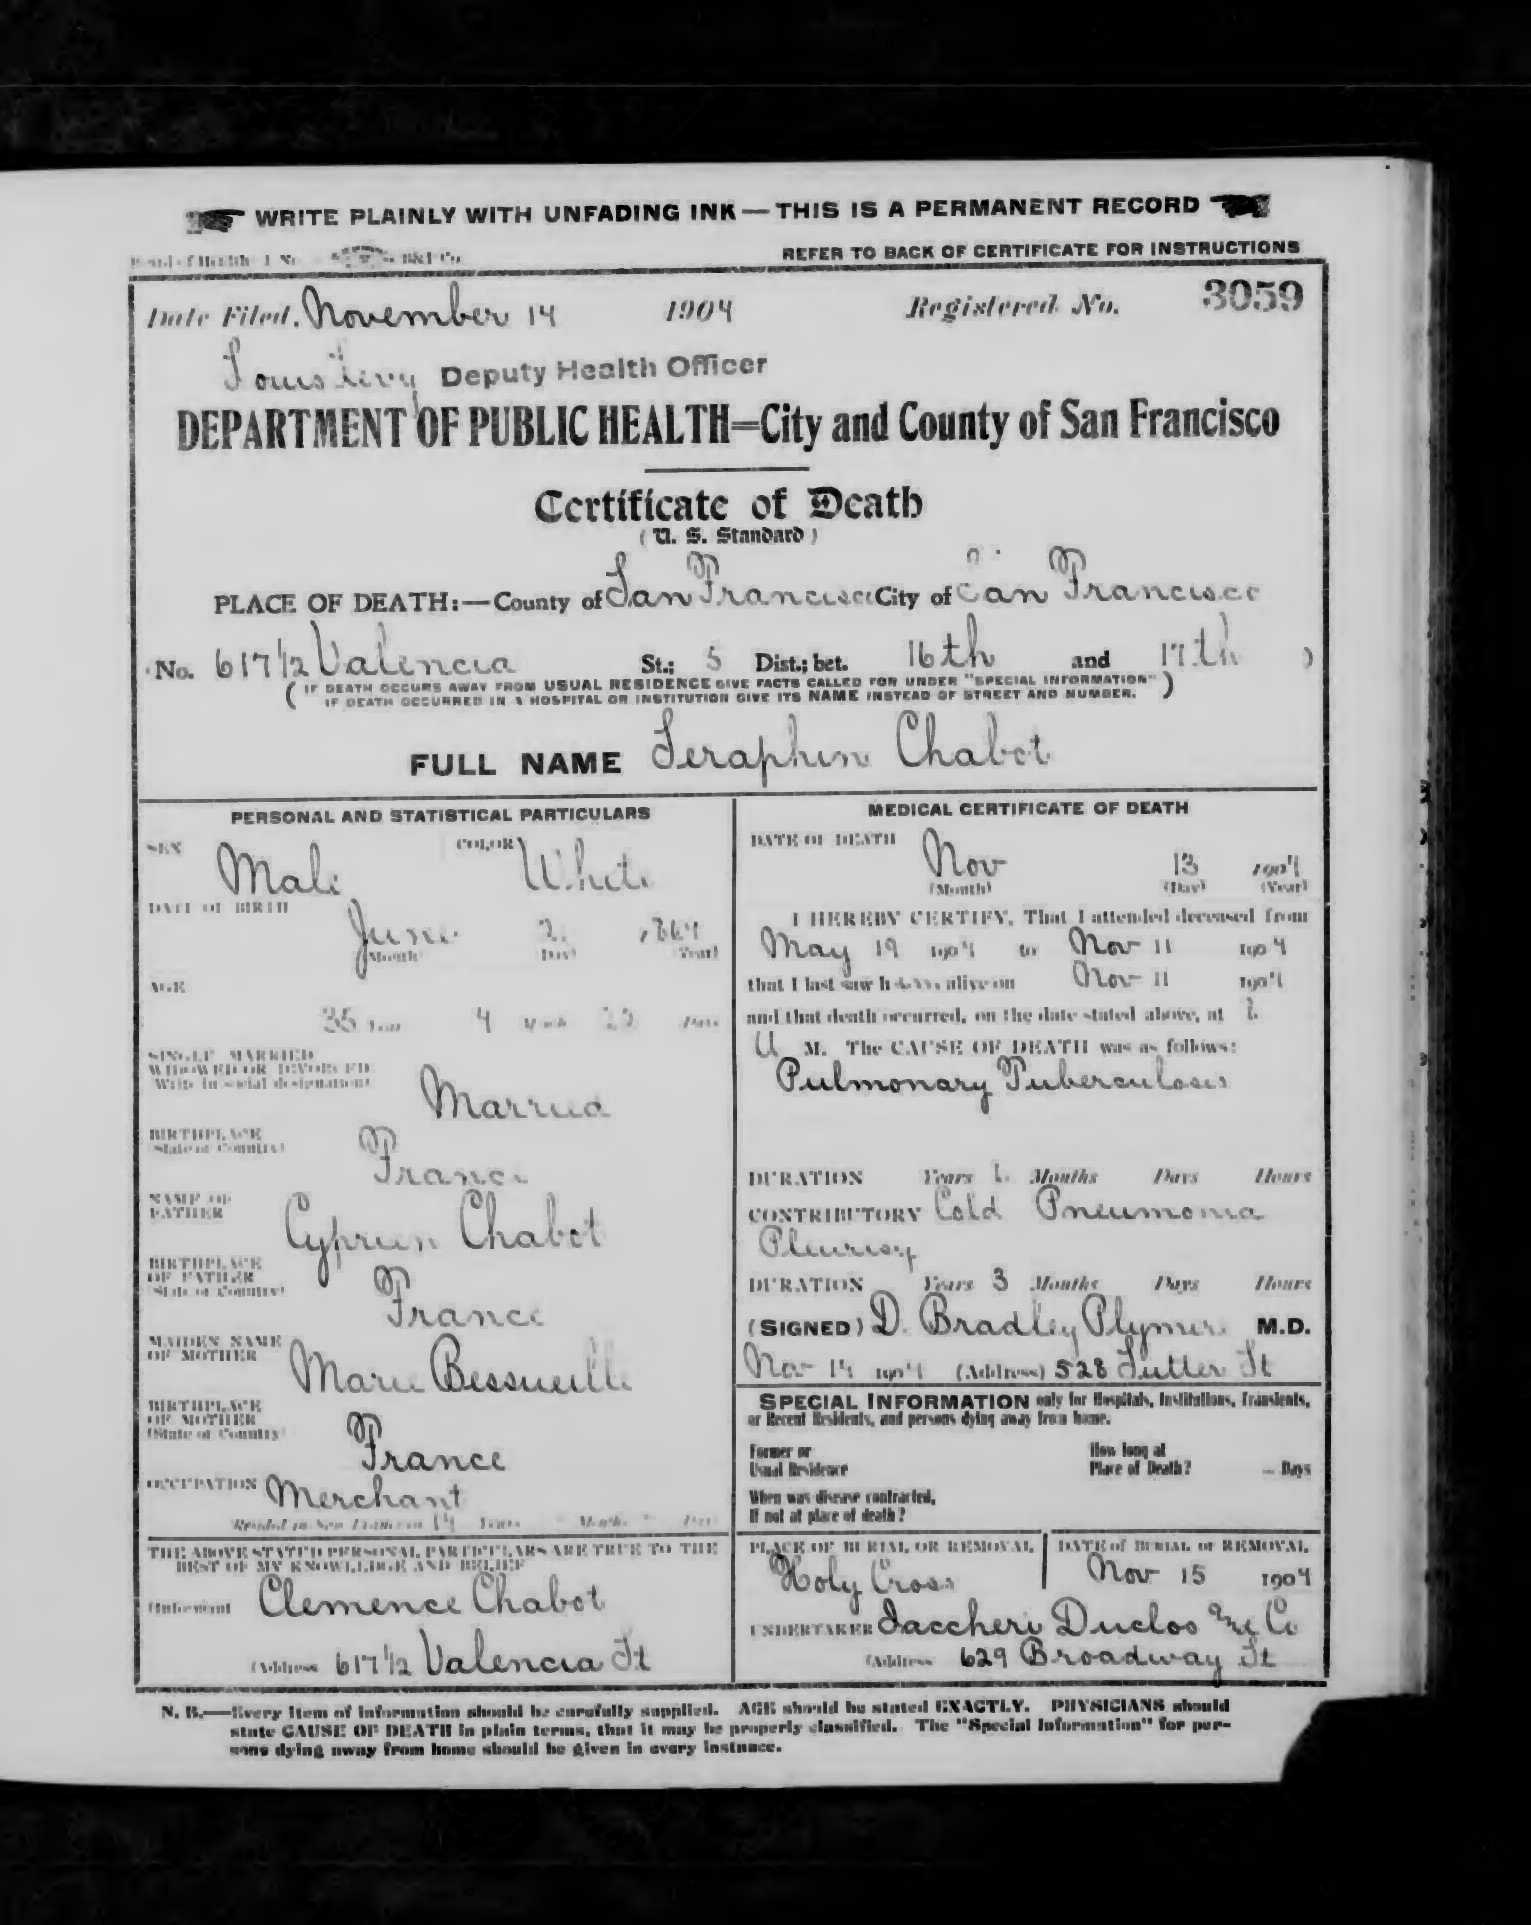 WRITE PLAINLY WITH UNFADING INK — THIS IS A PERMANENT RECORD
REFER TO BACK OF CERTIFICATE FOR INSTRUCTIONS
Date Filed, November 14 1904 Registered No. 3059
Louis Levy Deputy Health Officer
DEPARTMENT OF PUBLIC HEALTH=City and County of San Francisco
Certificate of Death
(U. S. Standard)
PLACE OF DEATH:—County of San Francisco City of San Francisco
No. 617 1/2 Valencia St.; 5 Dist.; bet. 16th and 17th )
( IF DEATH OCCURS AWAY FROM USUAL RESIDENCE GIVE FACTS CALLED FOR UNDER "SPECIAL INFORMATION" )
IF DEATH OCCURRED IN A HOSPITAL OR INSTITUTION GIVE ITS NAME INSTEAD OF STREET AND NUMBER.
FULL NAME Seraphin Chabot
PERSONAL AND STATISTICAL PARTICULARS
SEX Male COLOR White
DATE OF BIRTH
June 1864
(Month) (Day) (Year)
AGE
35 Years 4 Months Days
SINGLE MARRIED
WIDOWED OR DIVORCED
(Write in social designation)
Married
BIRTHPLACE
(State or Country)
France
NAME OF
FATHER
Cyprien Chabot
BIRTHPLACE
OF FATHER
(State or Country)
France
MAIDEN NAME
OF MOTHER
Marie
BIRTHPLACE
OF MOTHER
(State or Country)
France
OCCUPATION Merchant
Resided in San Francisco Years Months Days
THE ABOVE STATED PERSONAL PARTICULARS ARE TRUE TO THE
BEST OF MY KNOWLEDGE AND BELIEF
(Informant Clemence Chabot
(Address 617 1/2 Valencia St
MEDICAL CERTIFICATE OF DEATH
DATE OF DEATH
Nov 13 1904
(Month) (Day) (Year)
I HEREBY CERTIFY, That I attended deceased from
May 19 1904 to Nov 11 1904
that I last saw him alive on Nov 11 1904
and that death occurred, on the date stated above, at
M. The CAUSE OF DEATH was as follows:
Pulmonary Tuberculosis
DURATION Years Months Days Hours
CONTRIBUTORY Cold Pneumonia
Pleurisy
DURATION Years 3 Months Days Hours
(SIGNED) D. Bradley Plymer M.D.
Nov 14 1904 (Address) 528 Sutter St
SPECIAL INFORMATION only for Hospitals, Institutions, Transients,
or Recent Residents, and persons dying away from home.
Former or
Usual Residence
How long at
Place of Death? Days
When was disease contracted,
If not at place of death?
PLACE OF BURIAL OR REMOVAL
Holy Cross
DATE of BURIAL or REMOVAL
Nov 15 1904
UNDERTAKER Iaccheri Duclos & Co
(Address 629 Broadway St
N. B.—Every item of information should be carefully supplied. AGE should be stated EXACTLY. PHYSICIANS should
state CAUSE OF DEATH in plain terms, that it may be properly classified. The "Special Information" for per-
sons dying away from home should be given in every instance.